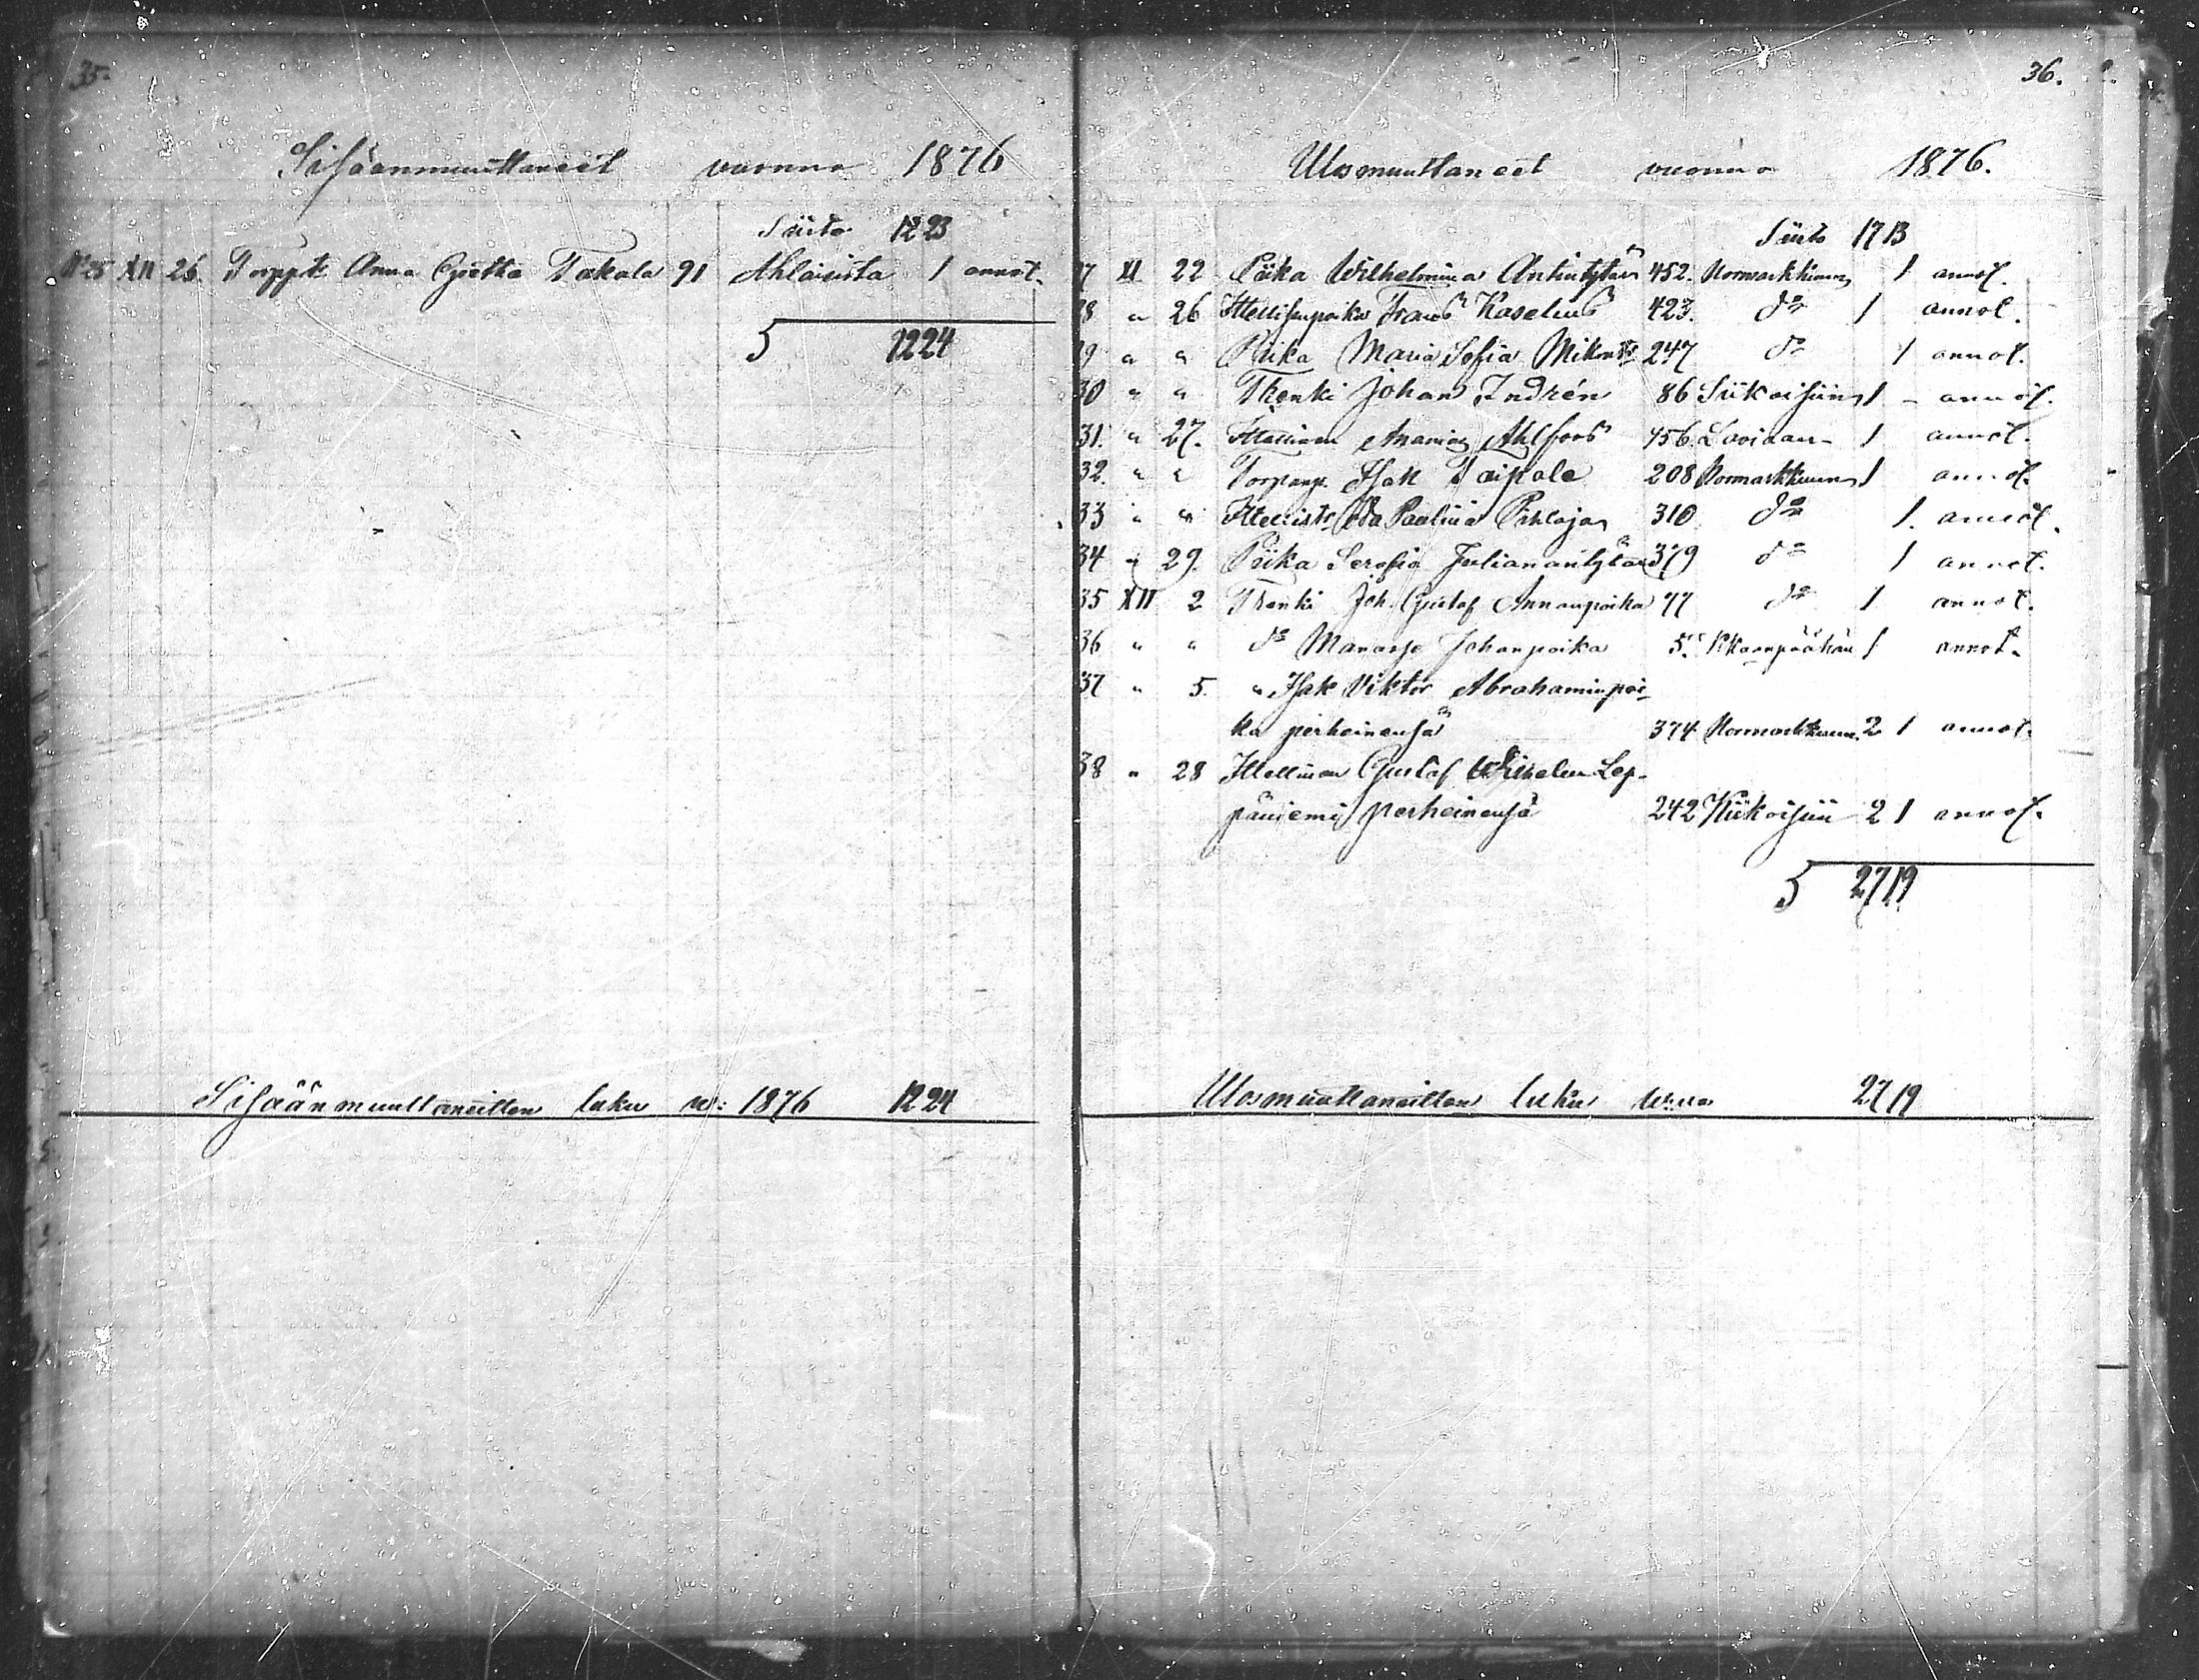 35.
Sisäänmuuttaneet vuonna 1876
Siirto 12 23
N:o 25 XII 26. Torppt. Anna Greetta Takala 91 Ahlaisista 1 annot.
S 12 24
Sisäänmuuttaneitten luku w: 1876 12 24
36.
Ulosmuuttaneet vuonna 1876.
Siirto 17 13
27 XI 22 Piika Wilhelmina Antintytär 452. Normarkkuun 1 annot.
28 " 26 Itsellisenpoika Frans Kaselius 423. d:o 1 annot.
29 " " Piika Maria Sofia 247 d:o 1 annot.
30 " " Renki Johan Indrén 86 Siikaisiin 1 - annot.
31. " 27. Itsellinen Ananias Ahlfors 456. Loviaan 1 annot.
32. " " Torpanp. Isak Taipale 208 Normarkkuun 1 annot.
33 " " Itsellist. Ida Paulina Pihlaja 310 d:o 1. annot.
34 " 29. Piika Serafia Julianantytär 379 d:o 1 annot.
35 XII 2 Renki Joh. Gustaf Annanpoika 77 d:o 1 annot.
36 " " d:o Manasse Johanpoika 5. Kkaanpäähän 1 annot.
37 " 5. " Isak Viktor Abrahaminpoi-
ka perheinensä 374 Normarkkuun. 2 1 annot.
38 " 28 Itsellinen Gustaf Wilhelm Lep-
päniemi perheinensä 242 Kiikoisiin 2 1 annot.
S 27 19
Ulosmuuttaneitten luku w:na 27 19